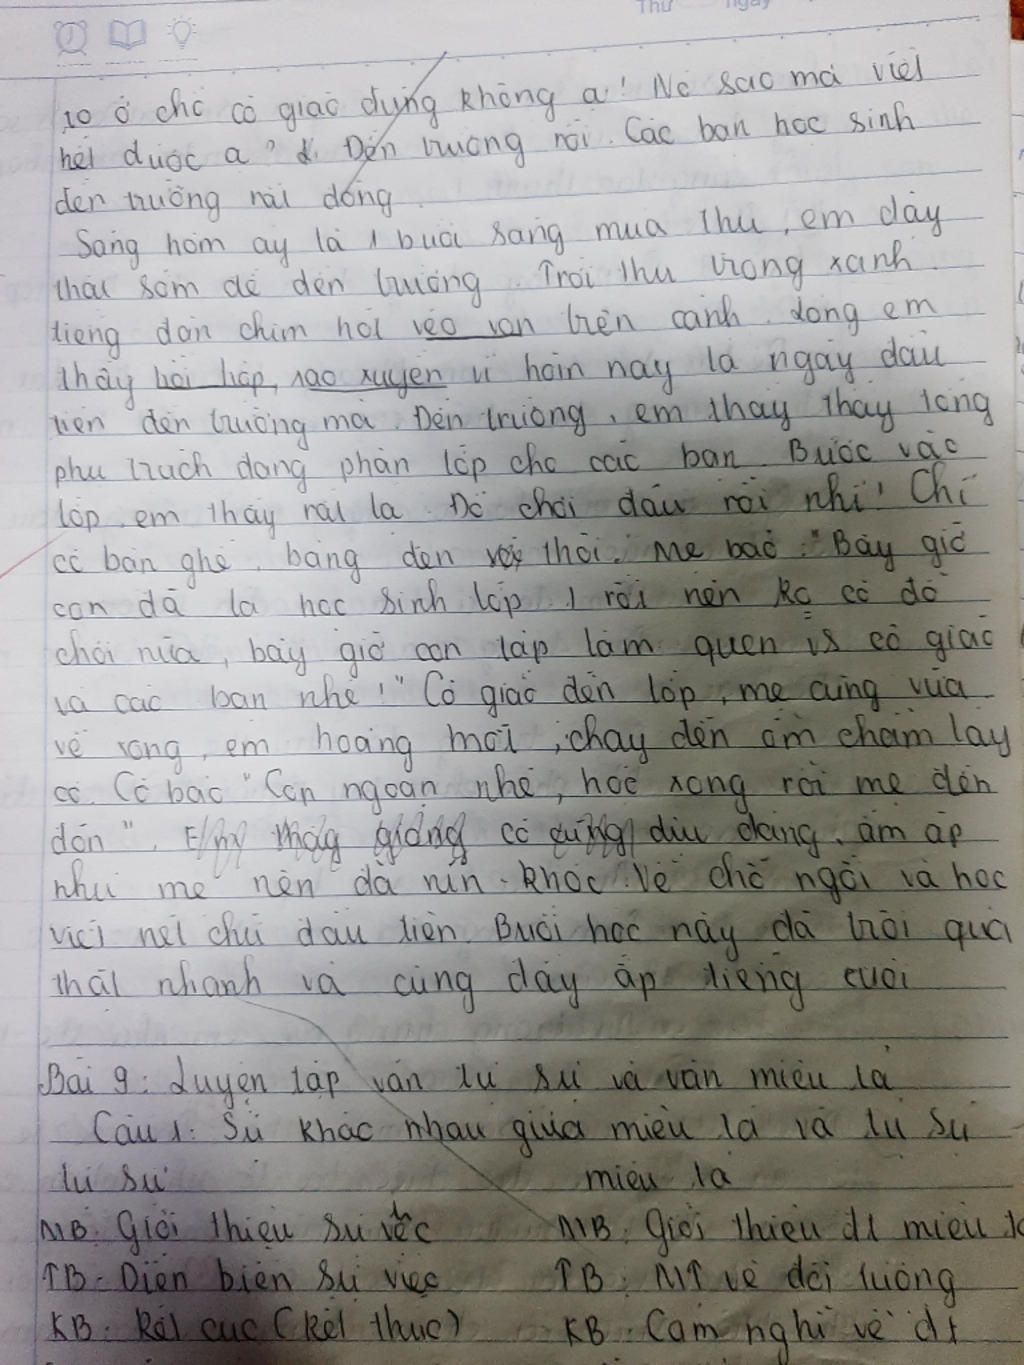 Thứ ngày
to ở chỗ cô giáo đứng không ạ! Nó sao mà viết
hết được ạ? Đến trường rồi. Các bạn học sinh
đến trường rất đông.
Sáng hôm ấy là 1 buổi sáng mùa thu, em dậy
thật sớm để đến trường. Trời thu trong xanh.
tiếng đàn chim hót véo von trên cành. Lòng em
thấy hồi hộp, xao xuyến vì hôm nay là ngày đầu
tiên đến trường mà. Đến trường, em thấy thầy tổng
phụ trách đang phân lớp cho các bạn. Bước vào
lớp, em thấy rất lạ. Đồ chơi đâu rồi nhỉ! Chỉ
có bàn ghế, bảng đen thôi. Mẹ bảo: "Bây giờ
con đã là học sinh lớp 1 rồi nên ko có đồ
chơi nữa, bây giờ con tập làm quen vs cô giáo
và các bạn nhé!" Cô giáo đến lớp, mẹ cũng vừa
về xong, em hoảng mới, chạy đến ôm chầm lấy
cô. Cô bảo "Con ngoan nhé, học xong rồi mẹ đến
đón". Em thấy giọng cô cũng dịu dàng, ấm áp
như mẹ nên đã nín khóc. Về chỗ ngồi và học
viết nét chữ đầu tiên. Buổi học này đã trôi qua
thật nhanh và cũng đầy ắp tiếng cười
Bài 9: Luyện tập văn tự sự và văn miêu tả
Câu 1: Sự khác nhau giữa miêu tả và tự sự
tự sự miêu tả
MB: Giới thiệu sự việc MB: Giới thiệu đt miêu tả
TB: Diễn biến sự việc TB: MT về đối tượng
KB: Kết cục (kết thúc) KB: Cảm nghĩ về đt